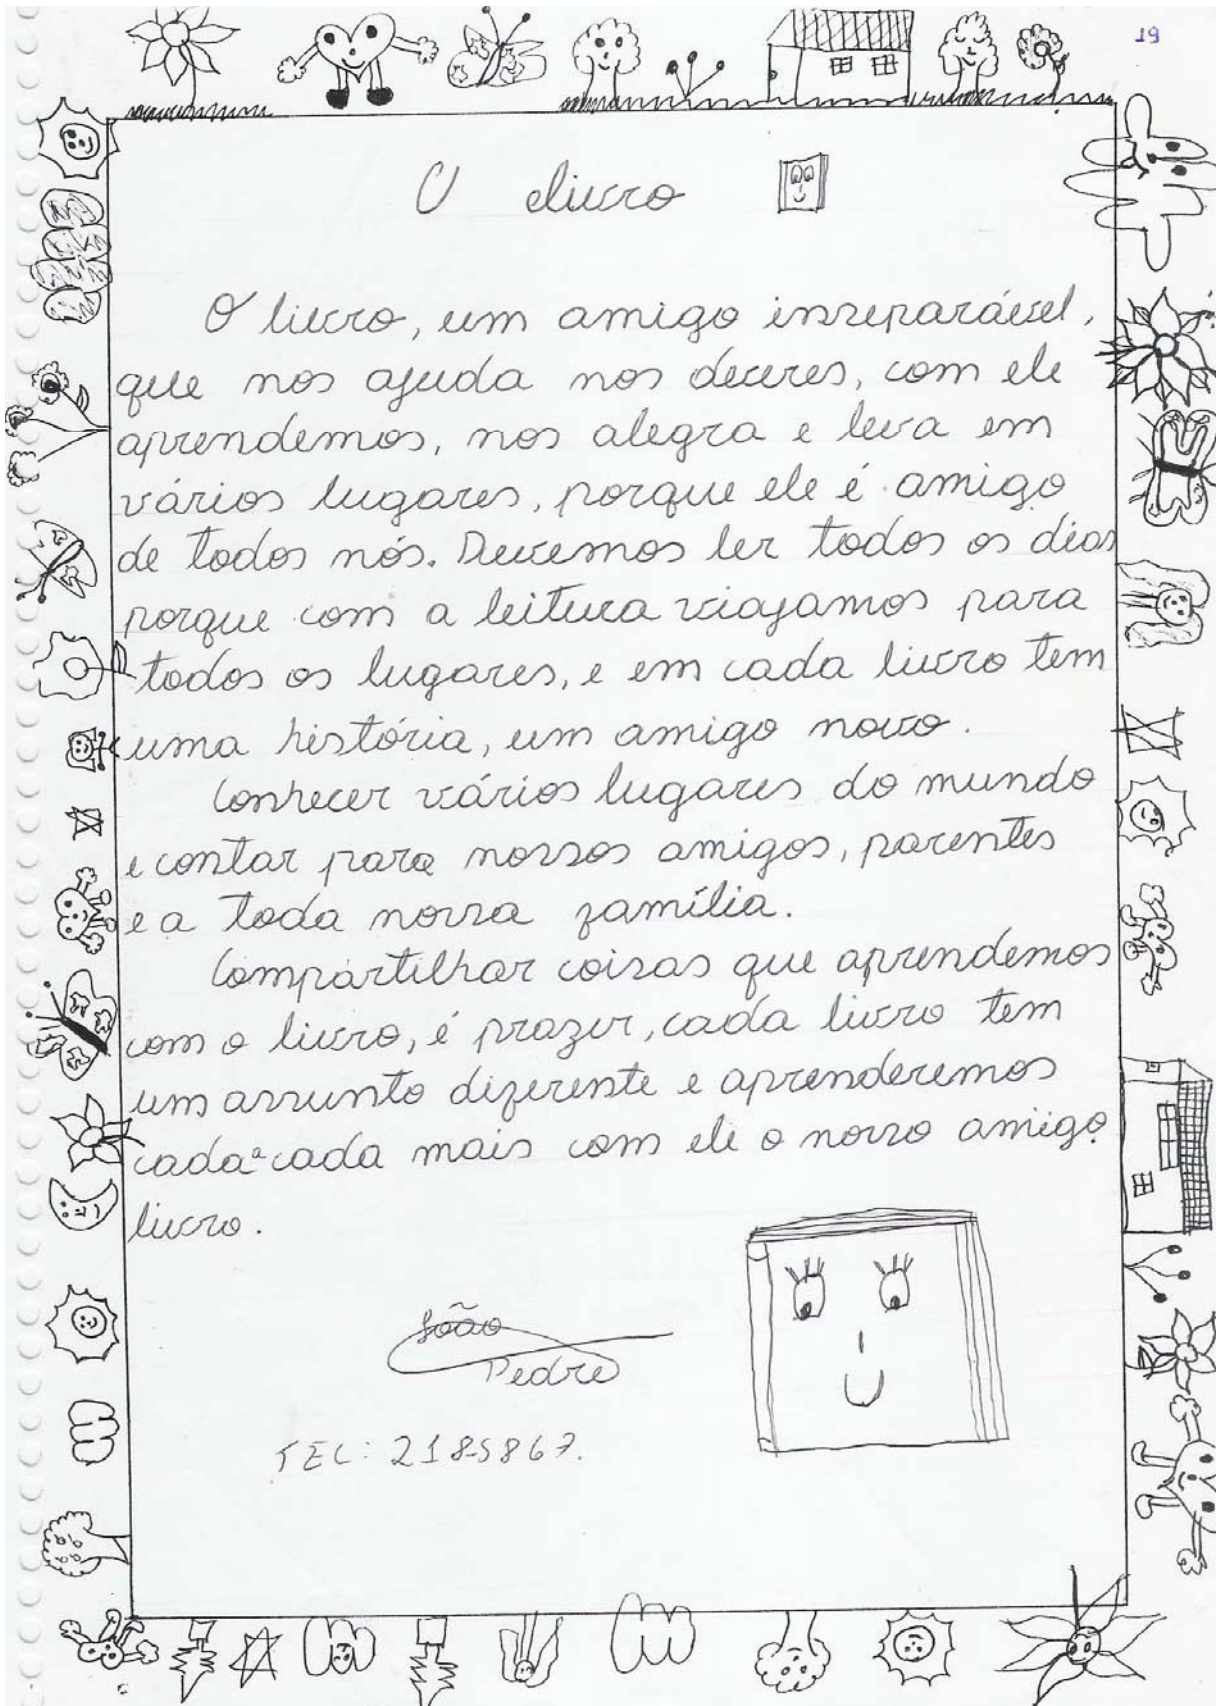 19
O livro
O livro, um amigo inseparável,
que nos ajuda nos deveres, com ele
aprendemos, nos alegra e leva em
vários lugares, porque ele é amigo
de todos nós. Devemos ler todos os dias
porque com a leitura viajamos para
todos os lugares, e em cada livro tem
uma história, um amigo novo.
Conhecer vários lugares do mundo
e contar para nossos amigos, parentes
e a toda nossa família.
Compartilhar coisas que aprendemos
com o livro, é prazer, cada livro tem
um assunto diferente e aprenderemos
cada cada mais com ele o nosso amigo
livro.
João
Pedro
TEL: 2185867.